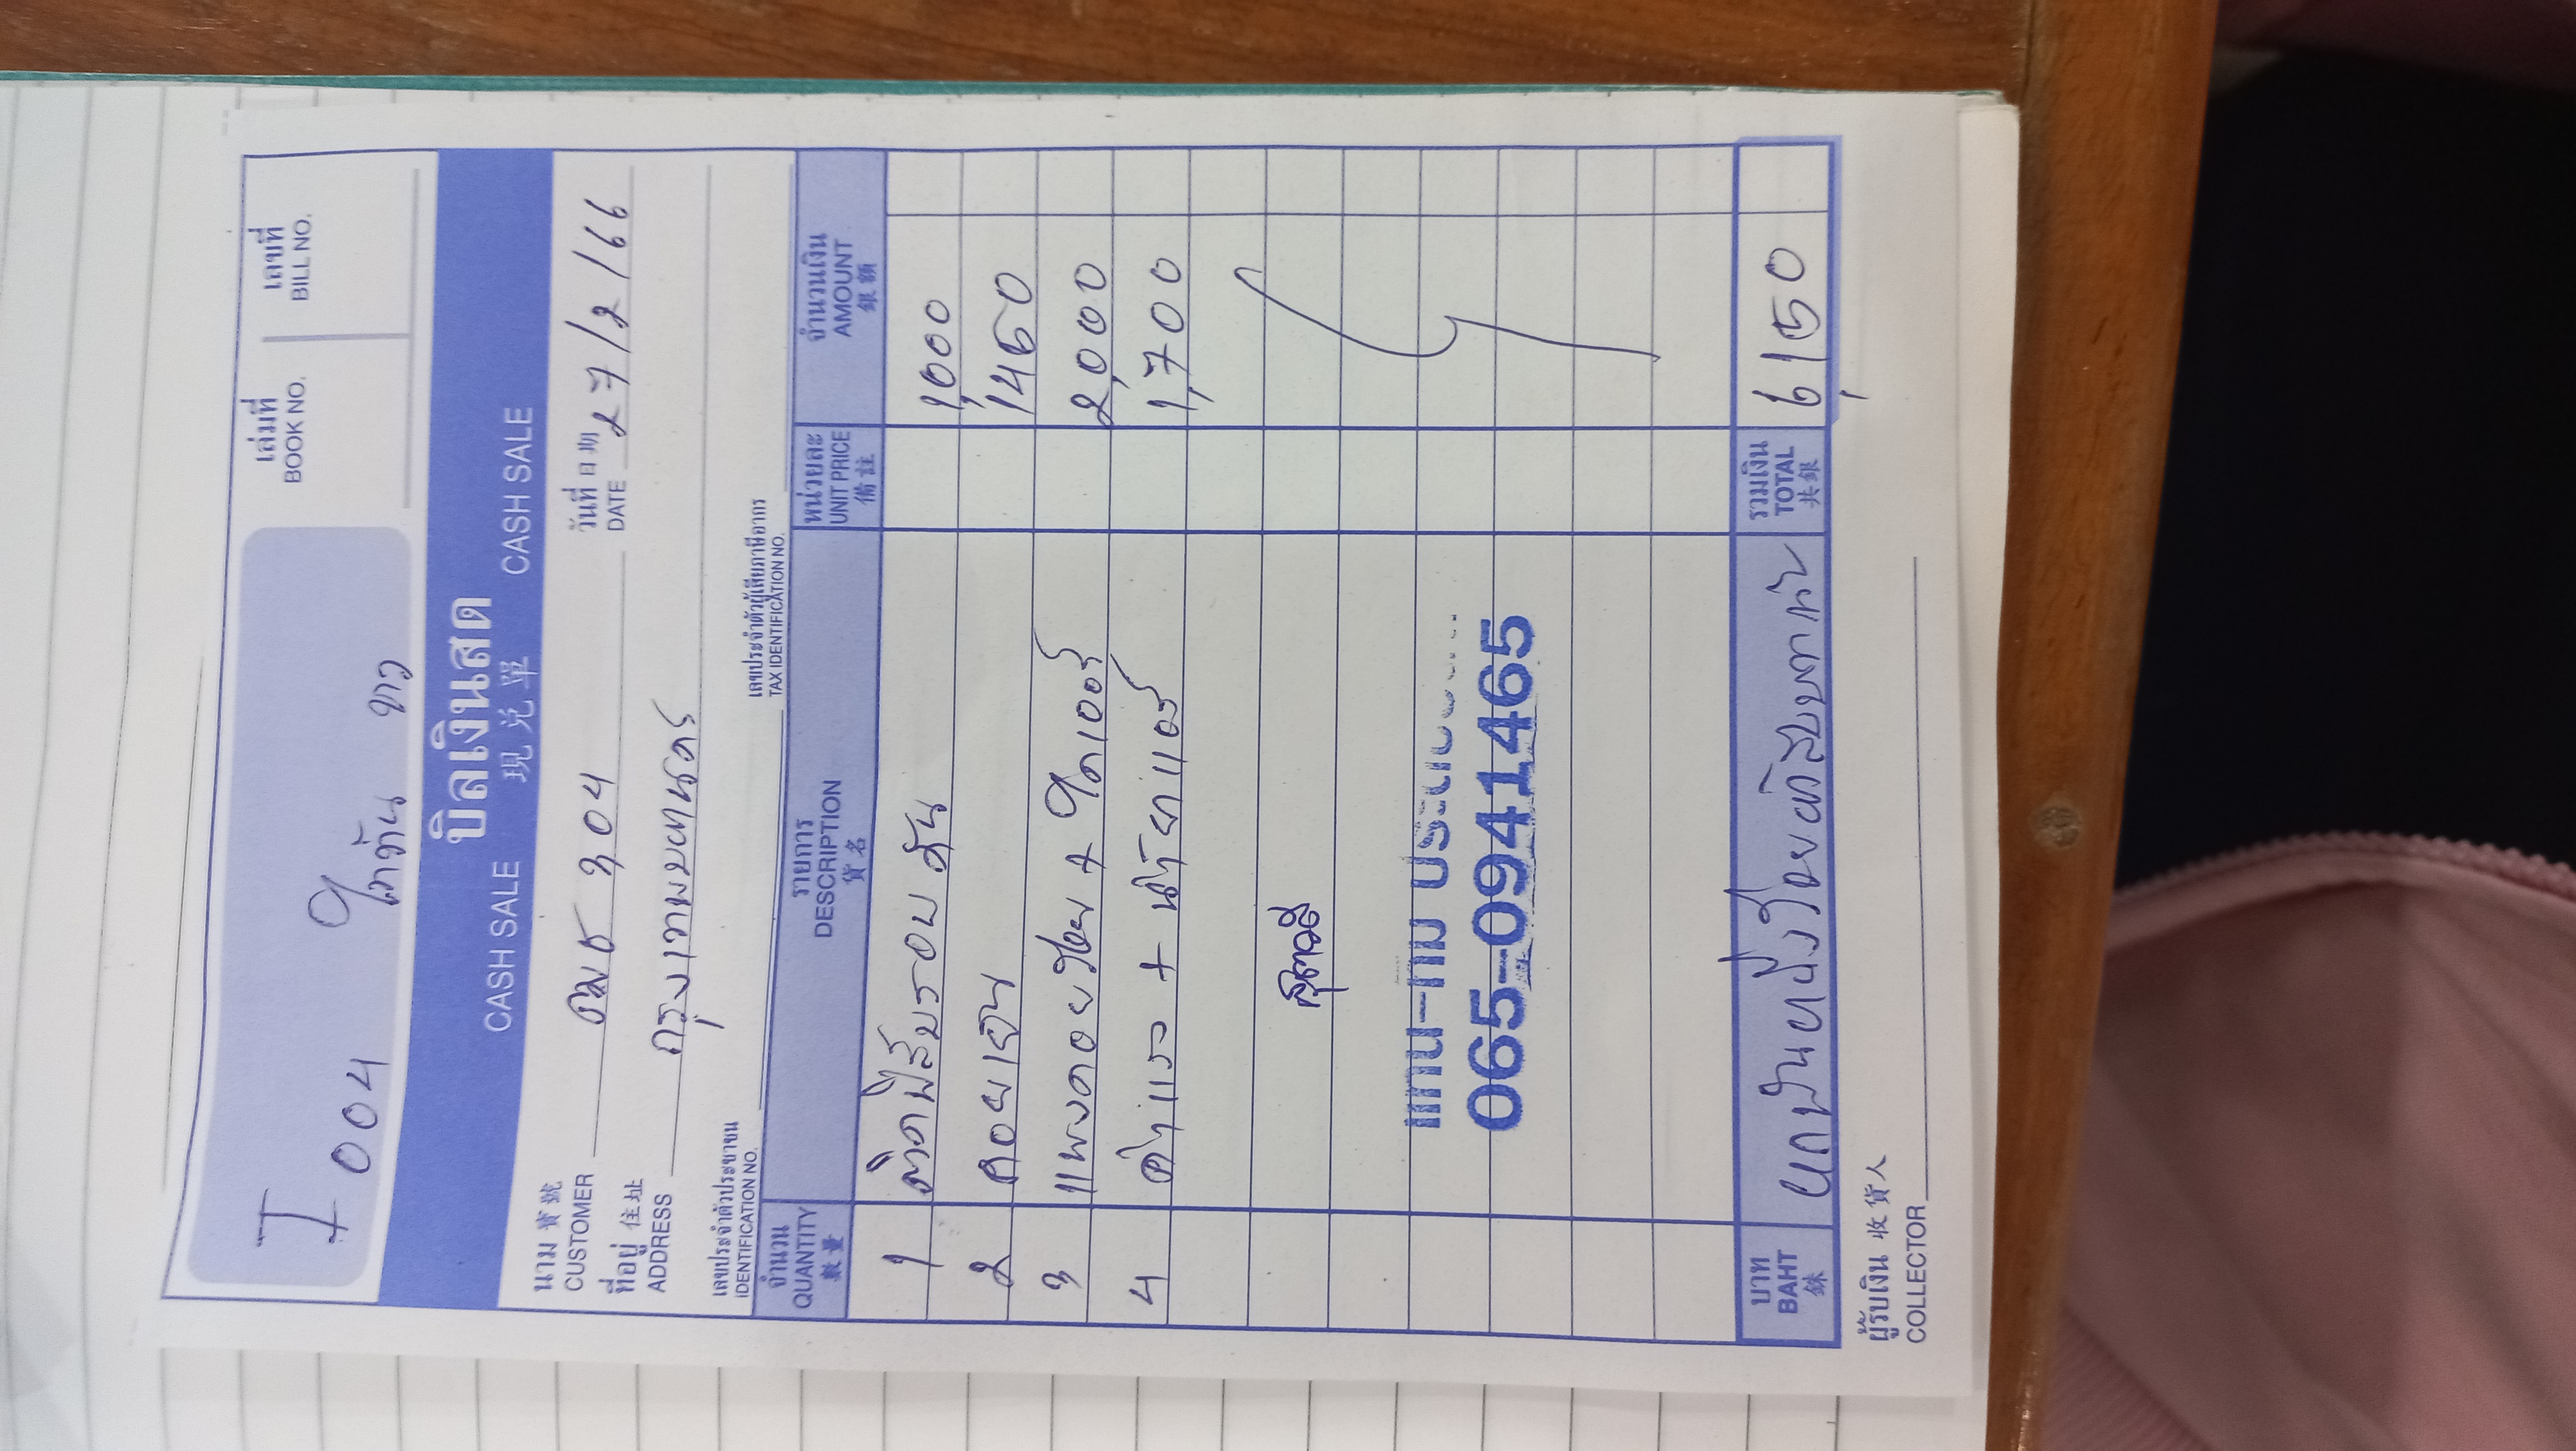 I 004 ไดทัน ขาว
เล่มที่
BOOK NO.
เลขที่
BILL NO.
บิลเงินสด
CASH SALE 現兌單 CASH SALE
นาม 寶號
CUSTOMER
304
วันที่ 日期
DATE 27/2/66
ที่อยู่ 住址
ADDRESS กรุงเทพมหานคร
เลขประจำตัวประชาชน
IDENTIFICATION NO.
เลขประจำตัวผู้เสียภาษีอากร
TAX IDENTIFICATION NO.
จำนวน
QUANTITY
數量
รายการ
DESCRIPTION
貨名
หน่วยละ
UNIT PRICE
備註
จำนวนเงิน
AMOUNT
銀額
1 ติดฟิล์มรอบคัน 1,000
2 คอยเย็น 1,450
3 แผงคอยร้อน + ไดเออร์ 2,000
4 ค่าแรง + น้ำยาแอร์ 1,700
สุดาวดี
065-0941465
บาท
BAHT
銖
หกพันหนึ่งร้อยห้าสิบบาทถ้วน
รวมเงิน
TOTAL
共銀
6,150
ผู้รับเงิน 收貨人
COLLECTOR